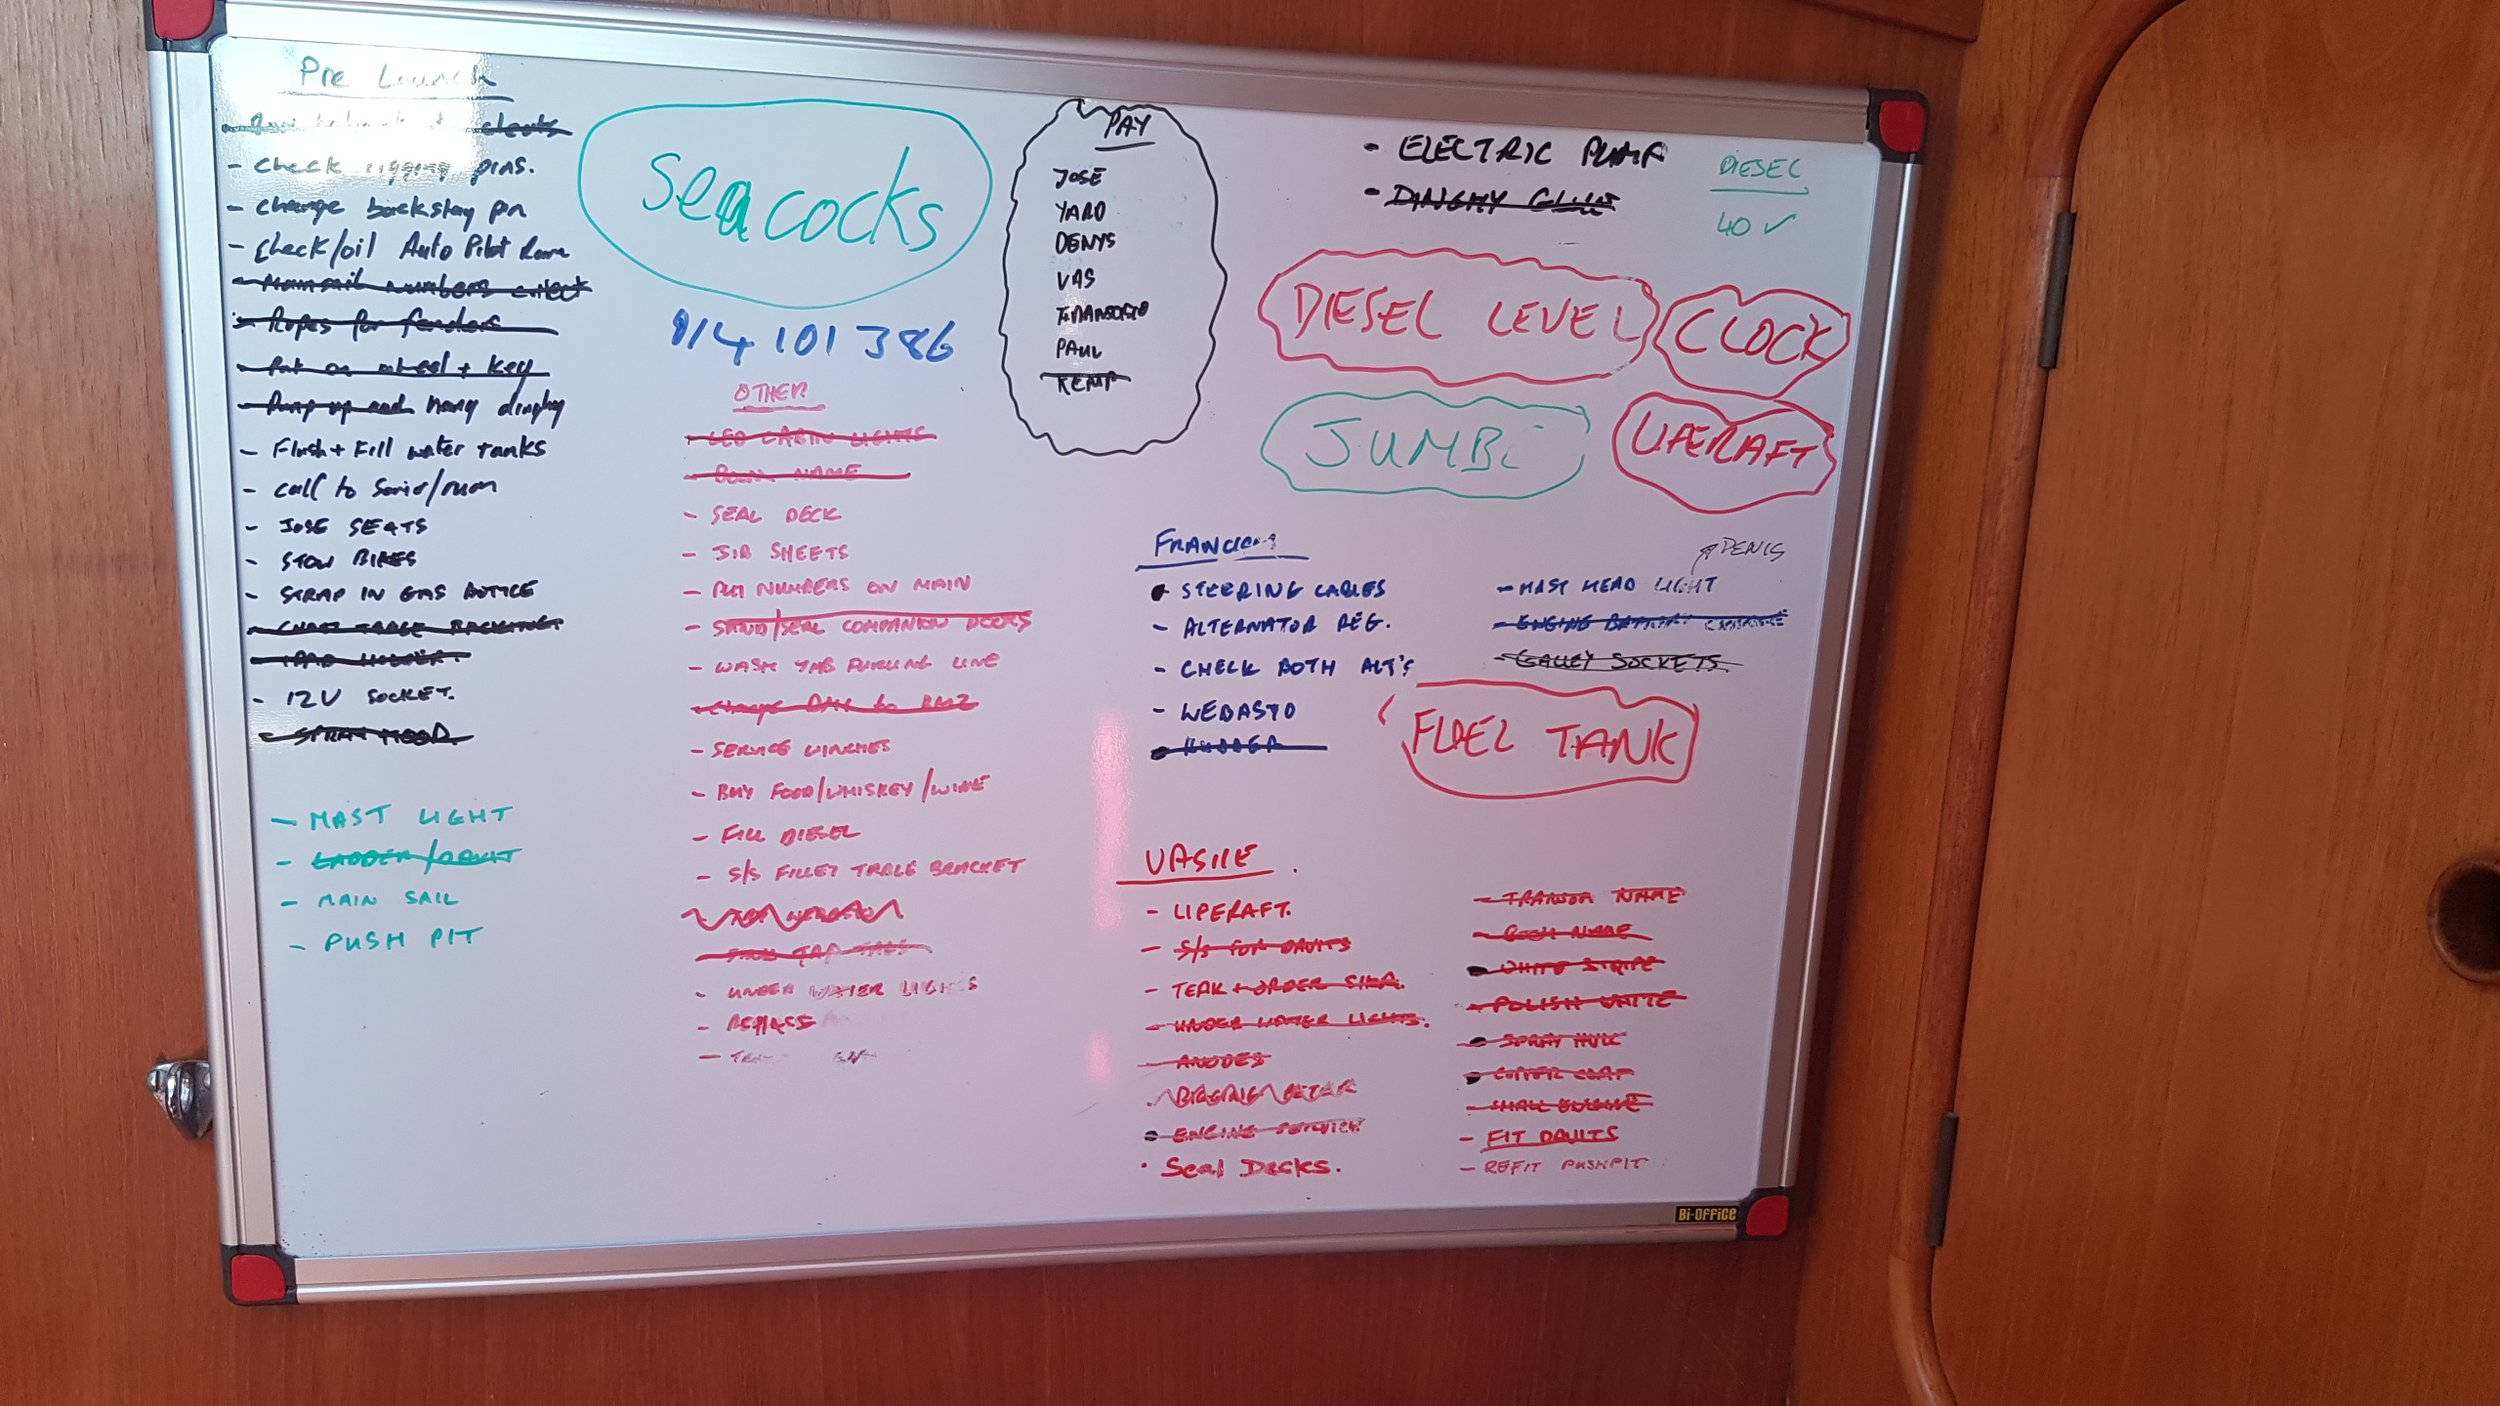 Pre Launch
- check rigging pins.
- change backstay pin
- check/oil Auto Pilot
- Mainsail numbers
- Ropes for fenders
- Put on wheel + key
- Pump up and hang dinghy
- Flush + Fill water tanks
- call to
- JOSE SEATS
- STOW BIKES
- STRAP IN GAS
- CHART TABLE
- IPAD HOLDER
- 12V SOCKET.
- SPRAY HOOD
- MAST LIGHT
- LADDER/
- MAIN SAIL
- PUSH PIT
Seacocks
914 101 386
OTHER
- LED CABIN LIGHTS
- NAME
- SEAL DECK
- JIB SHEETS
- PUT NUMBERS ON MAIN
- SAND/SEAL COMPANION DOORS
- WASH FURLING LINE
- Change to
- SERVICE WINCHES
- BUY FOOD/WHISKEY/WINE
- FILL DIESEL
- S/S FILLET TABLE BRACKET
- SINK TAP
- UNDER WATER LIGHTS
PAY
JOSE
YARD
DENYS
VAS
PAUL
KEMP
- ELECTRIC PUMP
- DINGHY
DIESEL
40 ✓
DIESEL LEVEL
CLOCK
LIFERAFT
- STEERING CABLES
- ALTERNATOR REG.
- CHECK BOTH ALT's
- WEBASTO
- RUDDER
DENIS
- MAST HEAD LIGHT
- ENGINE BATTERY
- GALLEY SOCKETS
FUEL TANK
VASILE
- LIFERAFT.
- S/S FOR DAVITS
- TEAK + ORDER SIKA.
- UNDER WATER LIGHTS.
- ANODES
- ENGINE SERVICE
· Seal Decks.
- TRANSOM NAME
- NAME
- WHITE STRIPE
- POLISH WHITE
- SPRAY HULL
- COPPER COAT
- SMALL ENGINE
- FIT DAVITS
- REFIT PUSHPIT
Bi-OFFICE